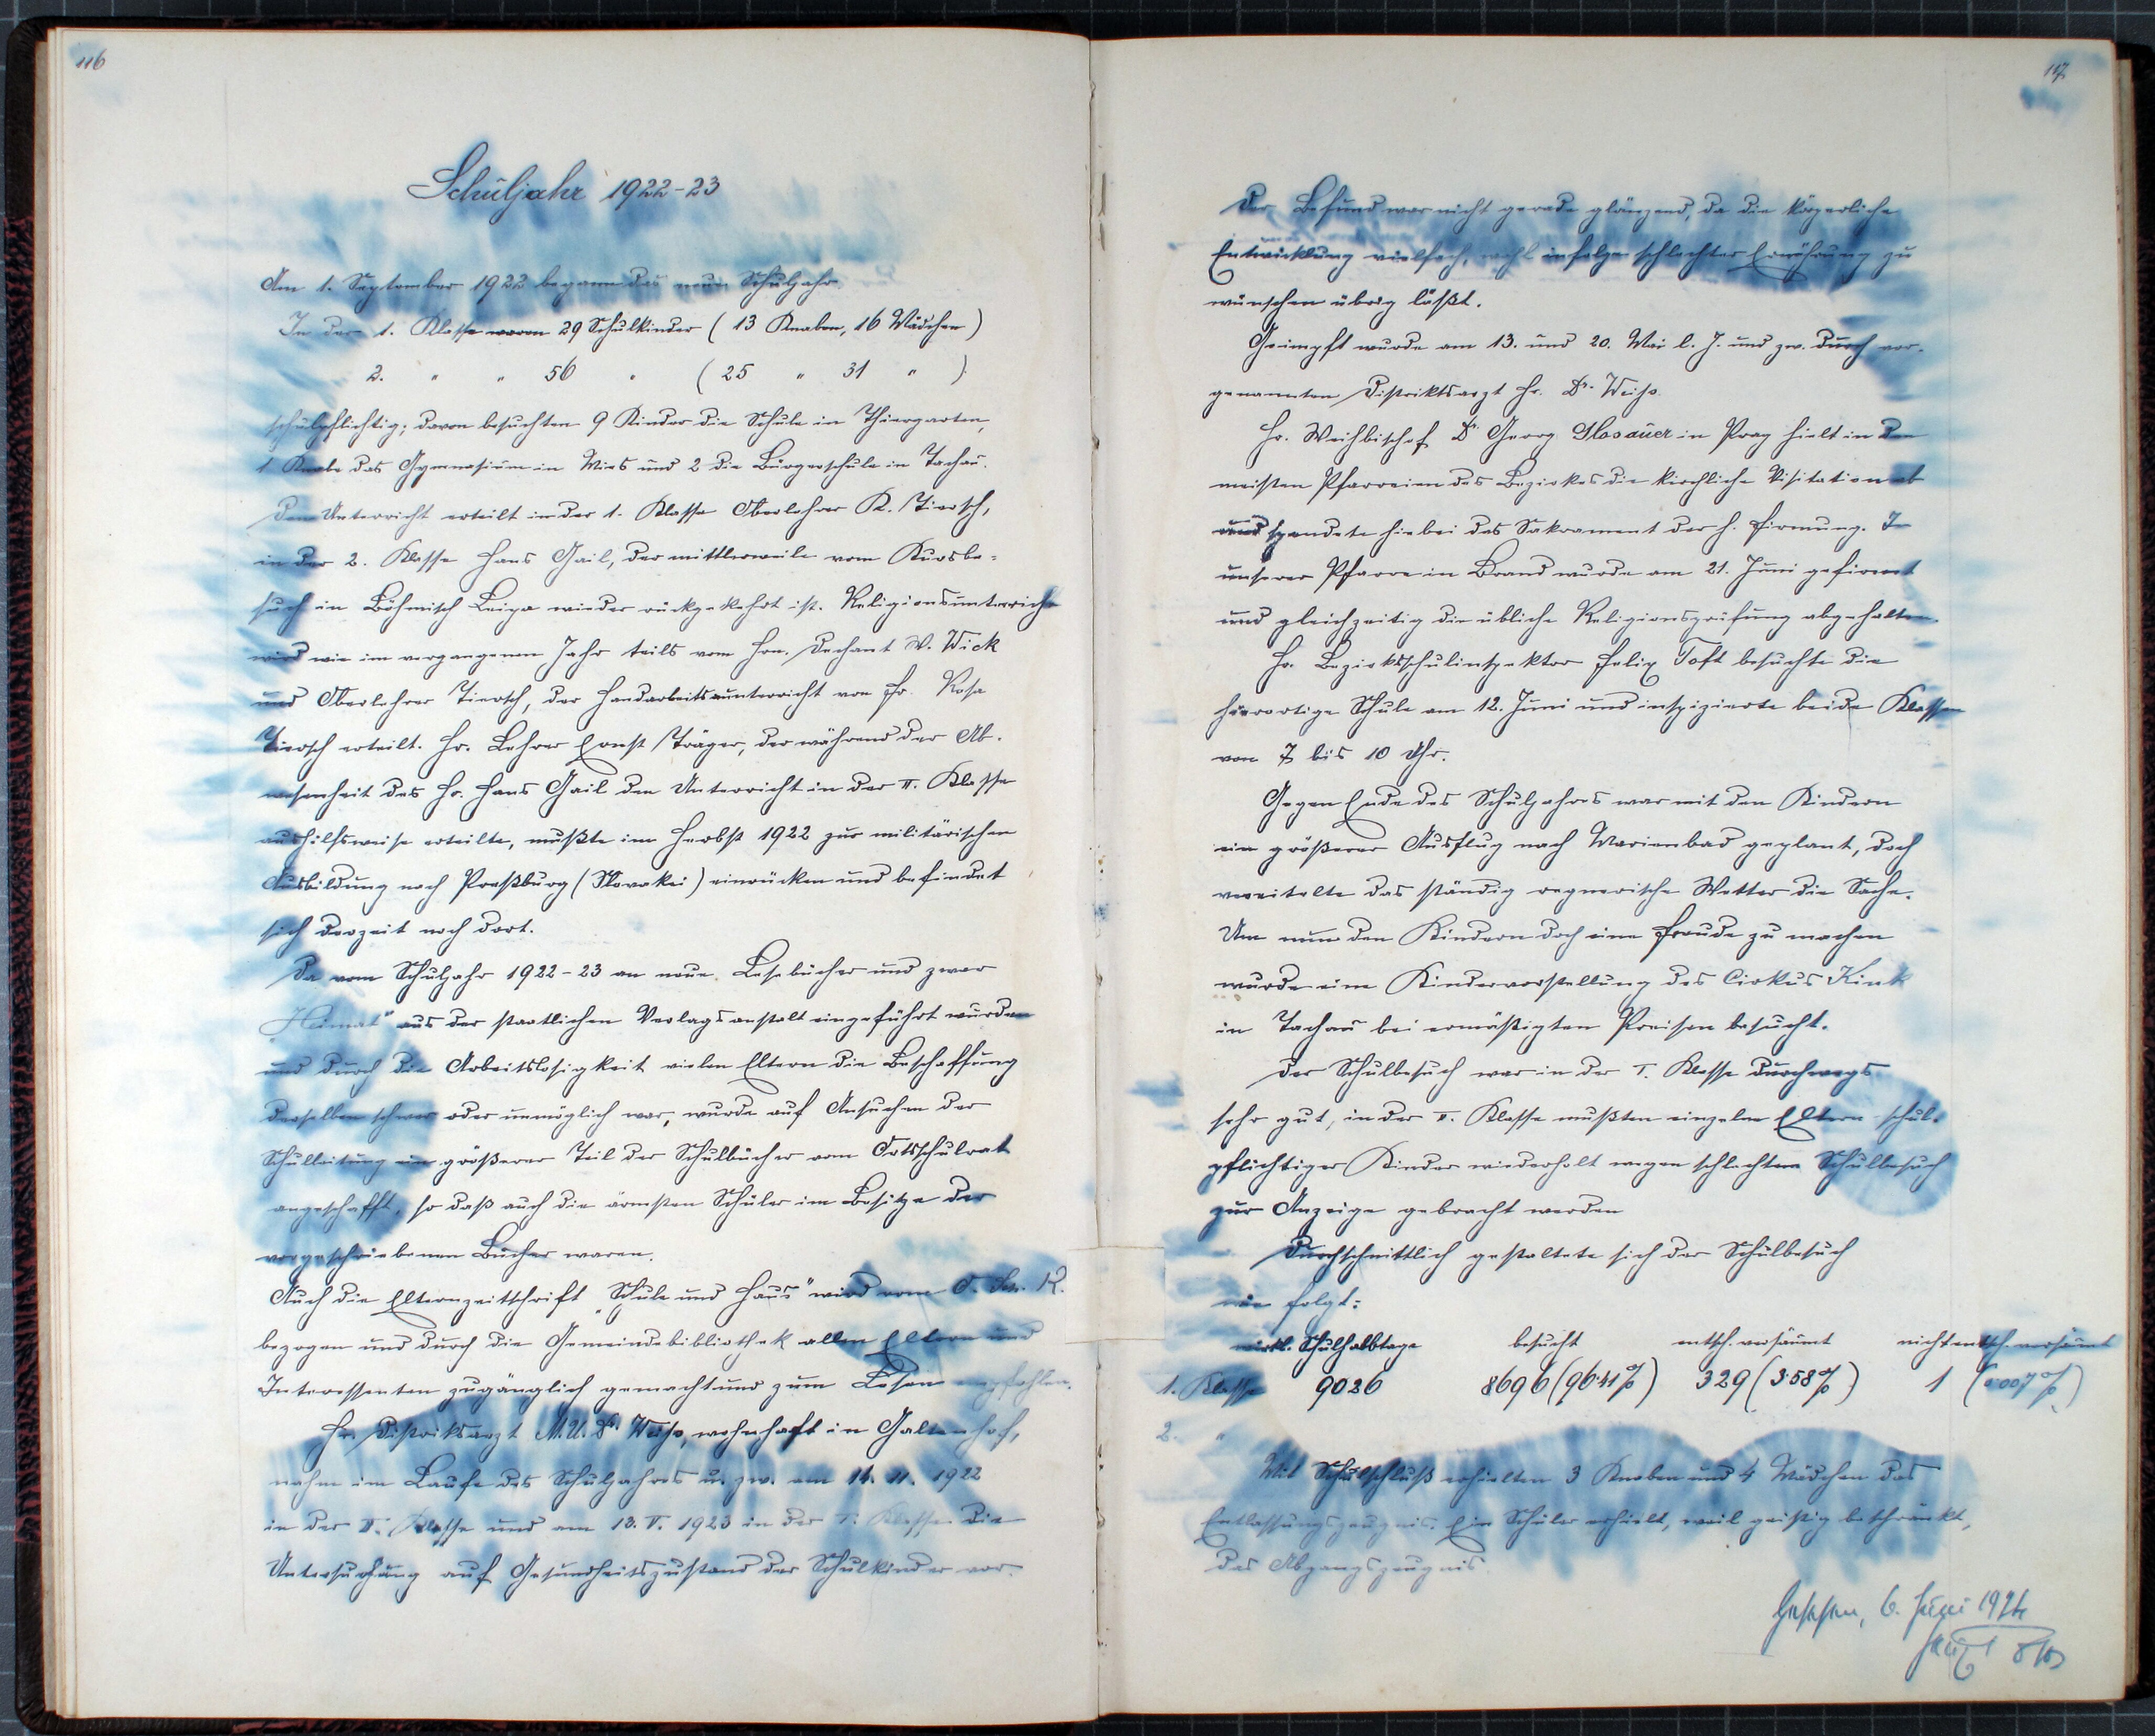 116
Schuljahr 1922-23
Am 1. September 1922 begann das neue Schuljahr
In der 1. Klasse waren 29 Schulkinder (13 Knaben, 16 Mädchen)
2. " " 56 " (25 " 31 " )
schulpflichtig; davon besuchten 9 Kinder die Schule in Thiergarten,
1 Knabe das Gymnasium in Mies und 2 die Bürgerschule in Tachau.
Den Unterricht erteilt in der 1. Klasse Oberlehrer K. Tiersch,
in der 2. Klasse Hans Gail, der mittlerweile vom Kursbe-
such in Böhmisch Leipa wieder rückgekehrt ist. Religionsunterricht
wird wie im vergangenen Jahr teils vom Hrn. Dechant W. Wick
und Oberlehrer Tiersch, der Handarbeitsunterricht von Fr. Rosa
Tiersch erteilt. Hr. Lehrer Ernst Träger, der während der Ab-
wesenheit des Hr. Hans Gail den Unterricht in der II. Klasse
aushilfsweise erteilte, mußte im Herbst 1922 zur militärischen
Ausbildung nach Preßburg (Slovakei) einrücken und befindet
sich derzeit noch dort.
Da vom Schuljahr 1922-23 an neue Lesebücher und zwar
Heimat" aus der staatlichen Verlagsanstalt eingeführt wurden
und durch die Arbeitslosigkeit vielen Eltern die Beschaffung
derselben schwer oder unmöglich war, wurde auf Ansuchen der
Schulleitung ein größerer Teil der Schulbücher vom Ortsschulrat
angeschafft, so daß auch die ärmsten Schüler im Besitze der
vorgeschriebenen Bücher waren.
Auch die Elternzeitschrift „Schule und Haus" wird vom O. Sch. R.
bezogen und durch die Gemeindebibliothek allen Eltern und
Interessenten zugänglich gemacht und zum Lesen empfohlen.
Hr. Distriktsarzt M.U.Dr. Weiß, wohnhaft in Galtenhof,
nahm im Laufe des Schuljahres u. zw. am 14. 11. 1922
in der II. Klasse und am 13. V. 1923 in der I. Klasse die
Untersuchung auf Gesundheitszustand der Schulkinder vor.
117
Der Befund war nicht gerade glänzend, da die körperliche
Entwicklung vielfach, wohl infolge schlechter Ernährung zu
wünschen übrig läßt.
Geimpft wurde am 13. und 20. Mai l. J. und zw. durch vor-
genannten Distriktsarzt Hr. Dr. Weiß.
Hr. Weihbischof Dr. Georg Glosauer in Prag hielt in den
meisten Pfarreien des Bezirkes die kirchliche Visitation ab
und spendete hiebei das Sakrament der h. Firmung. In
unserer Pfarre in Brand wurde am 21. Juni gefirmt
und gleichzeitig die übliche Religionsprüfung abgehalten.
Hr. Bezirksschulinspektor Felix Toft besuchte die
hierortige Schule am 12. Juni und inspizierte beide Klassen
von 7 bis 10 Uhr.
Gegen Ende des Schuljahres war mit den Kindern
ein größerer Ausflug nach Marienbad geplant, doch
vereitelte das ständig regnerische Wetter die Sache.
Um nun den Kindern doch eine Freude zu machen
wurde eine Kindervorstellung des Cirkus Kink
in Tachau bei ermäßigten Preisen besucht.
Der Schulbesuch war in der I. Klasse durchwegs
sehr gut, in der II. Klasse mußten einzelne Eltern schul-
pflichtiger Kinder wiederholt wegen schlechten Schulbesuch
zur Anzeige gebracht werden
Durchschnittlich gestaltete sich der Schulbesuch
wie folgt:
wirkl. Schulhalbtage besucht entsch. versäumt nicht entsch. versäumt
1. Klasse 9026 8696 (96·41%) 329 (3·58%) 1 (0·007%)
2. "
Mit Schulschluß erhielten 3 Knaben und 4 Mädchen das
Entlassungszeugnis. Ein Schüler erhielt, weil geistig beschränkt,
das Abgangszeugnis.
Gesehen, 6. Juni 1924